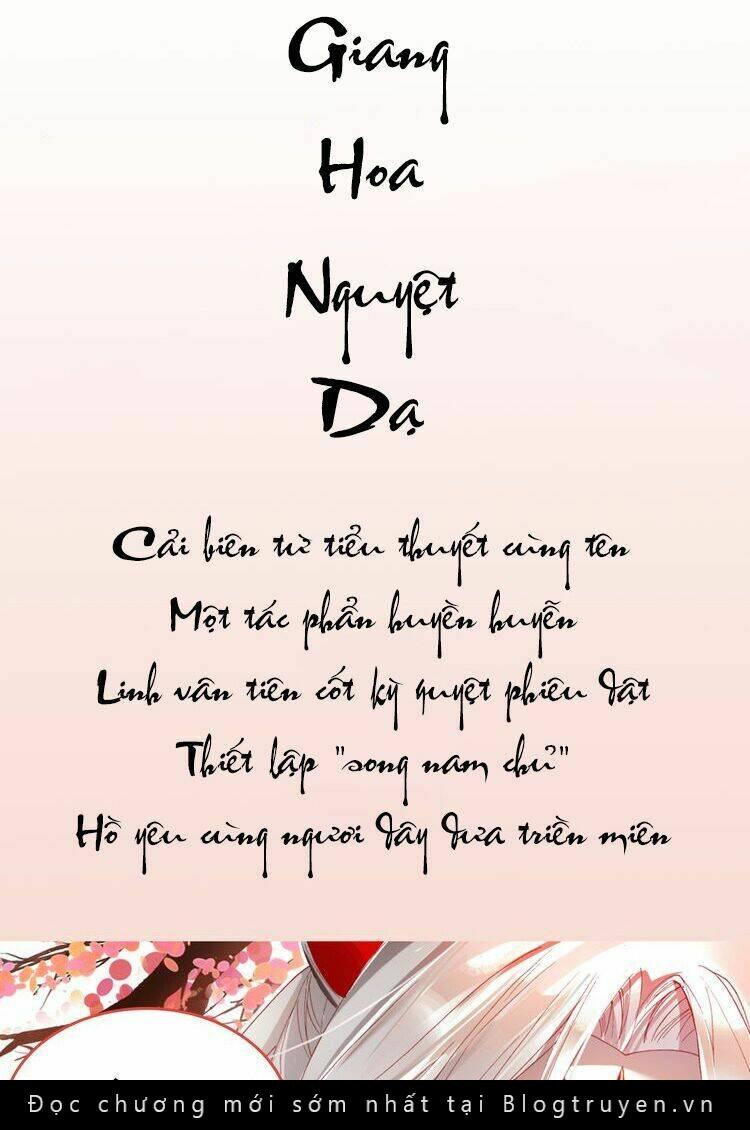 Giang
Hoa
Nguyệt
Dạ
Cải biên từ tiểu thuyết cùng tên
Một tác phẩn huyền huyễn
Linh vân tiên cốt kỳ quyệt phiêu dật
Thiết lập "song nam chủ"
Hồ yêu cùng ngươi dây dưa triền miên
Đọc chương mới sớm nhất tại Blogtruyen.vn